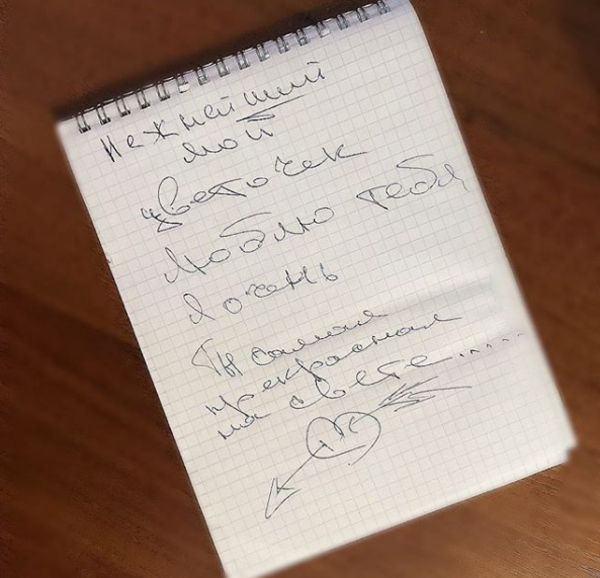 нежнейший
мой
цветочек
люблю тебя
я очень
Ты самая
прекрасная
на свете.....